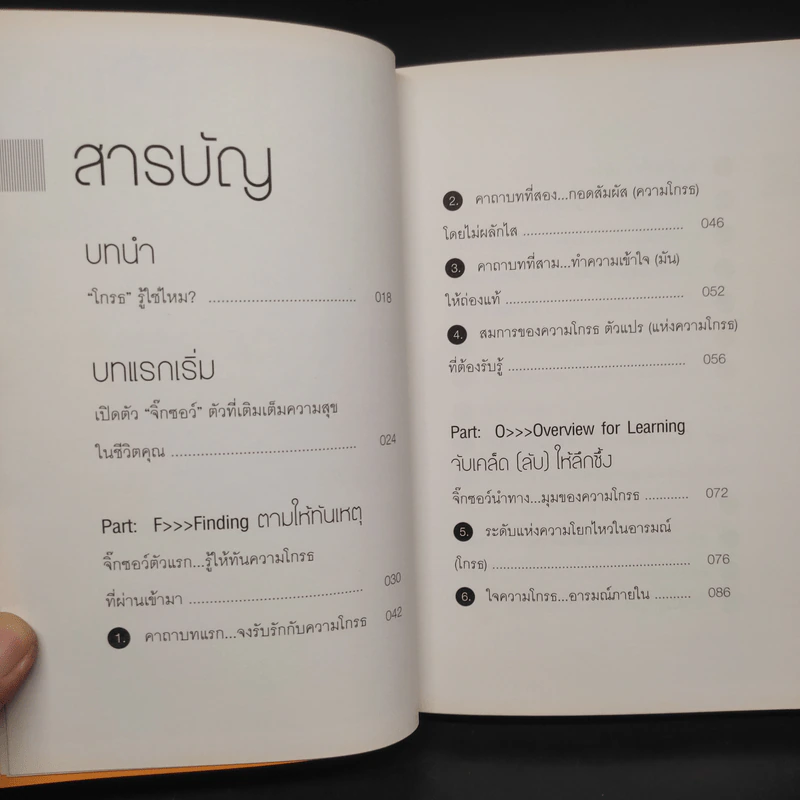 สารบัญ
บทนำ
“โกรธ” รู้ใช่ไหม? 018
บทแรกเริ่ม
เปิดตัว “จิ๊กซอว์” ตัวที่เติมเต็มความสุข
ในชีวิตคุณ 024
Part: F>>>Finding ตามให้ทันเหตุ
จิ๊กซอว์ตัวแรก...รู้ให้ทันความโกรธ
ที่ผ่านเข้ามา 030
1. คาถาบทแรก...จงรับรักกับความโกรธ 042
2. คาถาบทที่สอง...กอดสัมผัส (ความโกรธ)
โดยไม่ผลักไส 046
3. คาถาบทที่สาม...ทำความเข้าใจ (มัน)
ให้ถ่องแท้ 052
4. สมการของความโกรธ ตัวแปร (แห่งความโกรธ)
ที่ต้องรับรู้ 056
Part: O>>>Overview for Learning
จับเคล็ด (ลับ) ให้ลึกซึ้ง
จิ๊กซอว์นำทาง...มุมของความโกรธ 072
5. ระดับแห่งความโยกไหวในอารมณ์
(โกรธ) 076
6. ใจความโกรธ...อารมณ์ภายใน 086